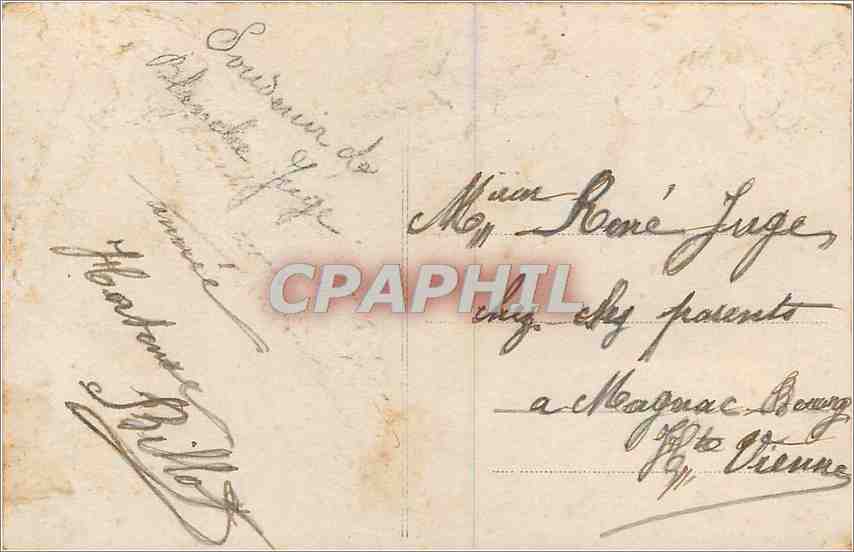 Souvenir de
Blanche Juge
année
Hortense
Billot
CPAPHIL
Mieur René Juge
chez ses parents
a Magnac Bourg
Hte Vienne